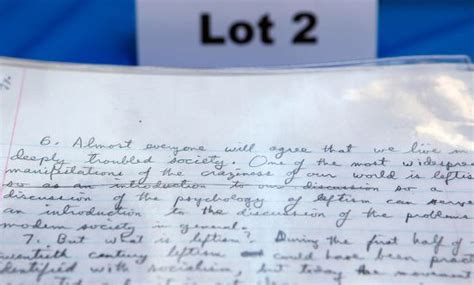 Lot 2
6. Almost everyone will agree that we live in
deeply troubled society. One of the most widespre
manifestations of the craziness of our world is leftis
so as an introduction to our discussion so a
discussion of the psychology of leftism can serve
an introduction to the discussion of the problems
modern society in general.
7. But what is leftism? During the first half of
wentieth century leftism could have been pract
dentified with socialism, but today the movement